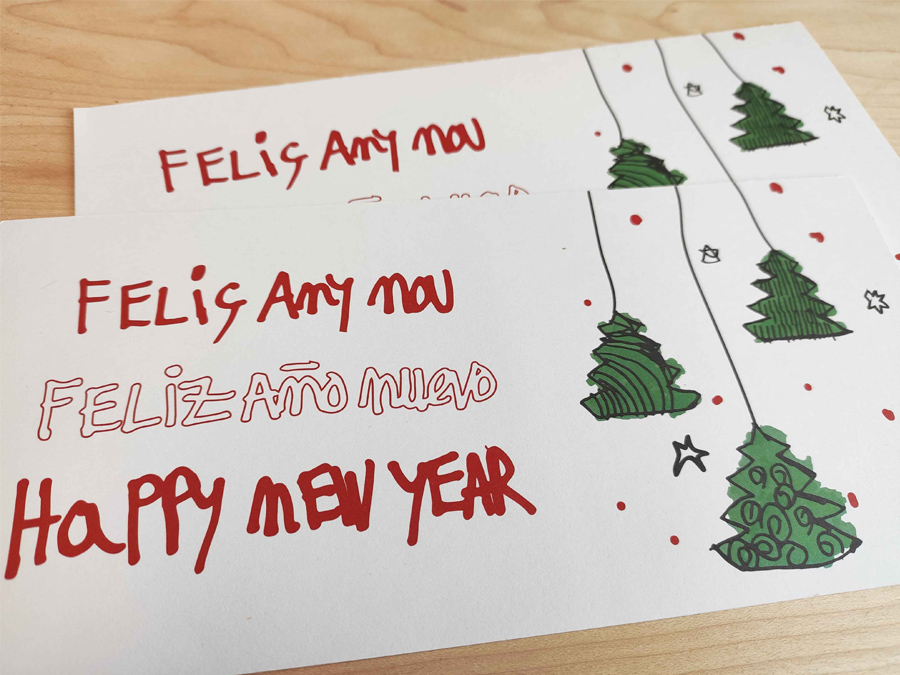 FELiç Any nou
FELiç Any nou
FELiZ AÑo nuevo
HaPPy nEW YEAR